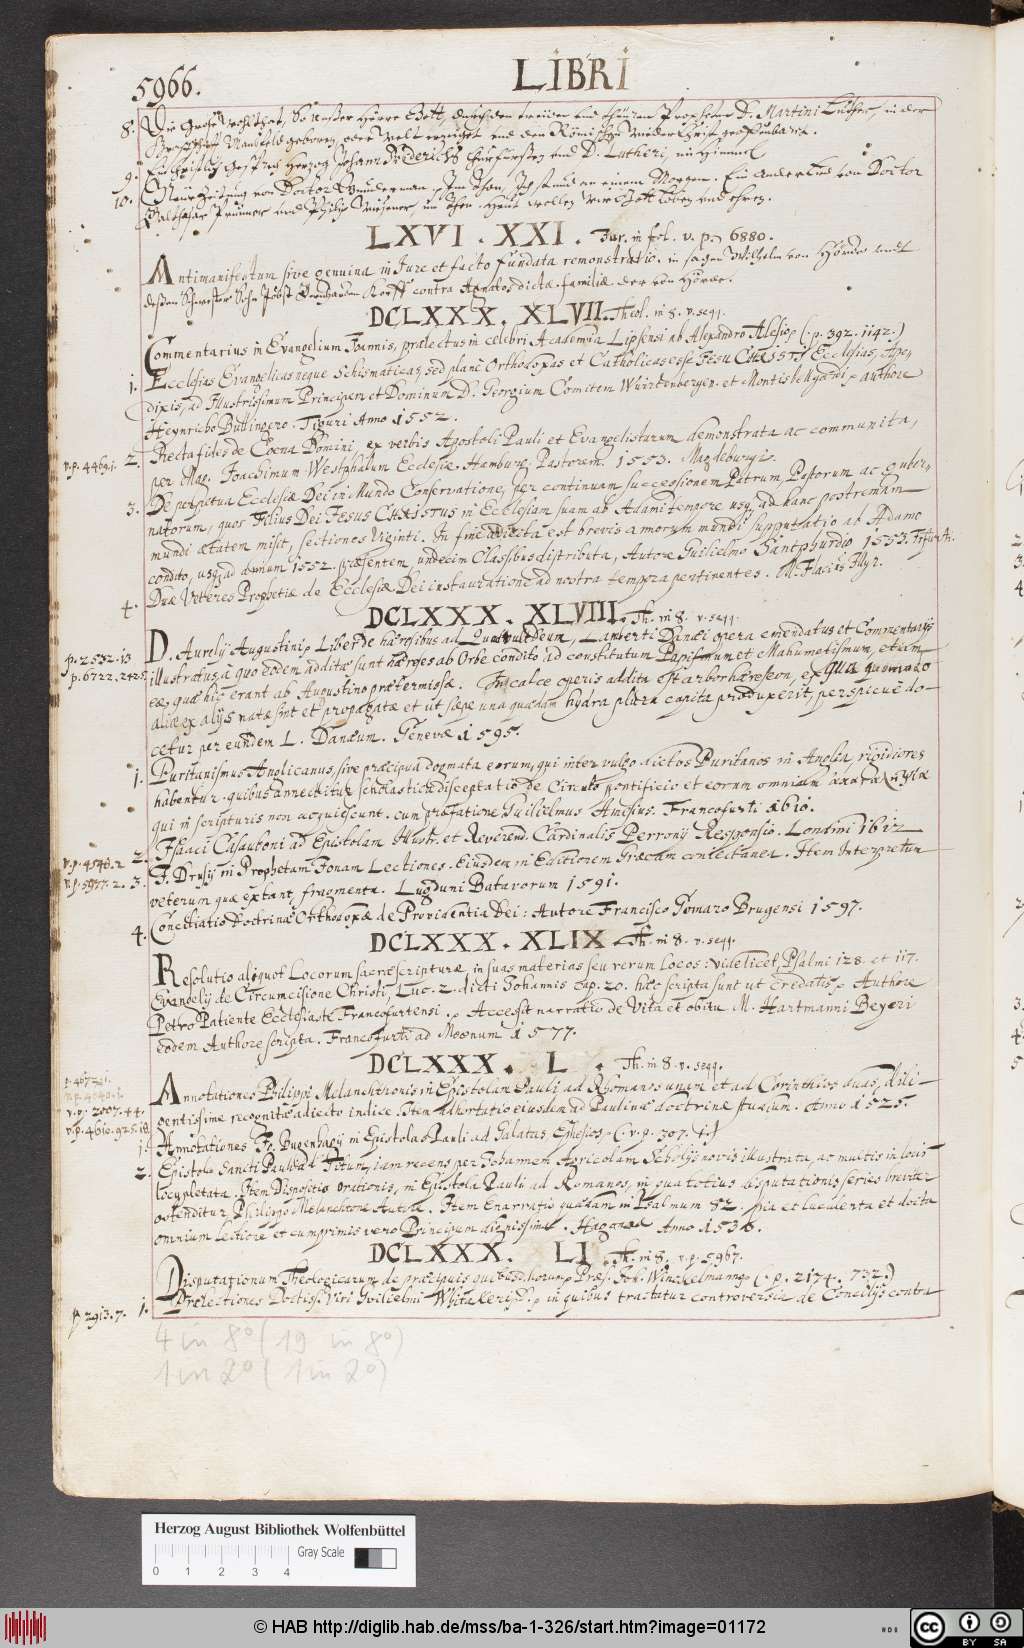 5966.
LIBRI
8. Die grosse Wolthat, So unser Herre Gott, durch den und Propheten D. Martini Luther, in der
Graffschafft Mansfeld geboren, der Welt erzeiget und den Römischen Widerchrist geoffenbaret.
9. Ein Gespräch Herzog Johann Friderichs Churfürsten und D. Lutheri, im Himmel
10. Neue Zeitung von Doctor Im thon, Ich stund an einem Morgen. Ein ander Lied von Doctor
und im thon. Herr Gott loben und ehren.
LXVI. XXI. Jur. in fol. v. p. 6880.
Antimanifestum sive genuina in Jure et facto fundata remonstratio. in sachen Wilhelm von Hörde undt
dessen Schwester Sohn Jobst Korff contra Agnatos dictæ familiæ der von Hörde.
DCLXXX. XLVII. Theol. in 8. v. seqq.
Commentarius in Evangelium Joannis, prælectus in celebri Academia Lipsensi ab Alexandro Alesio (: p. 392. 1142.)
1. Ecclesias Evangelicas neque Schismaticas, sed planè Orthodoxas et Catholicas esse JESU CHRISTI Ecclesias, Apo-
dixis, ad Illustrissimum Principem et Dominum D. Georgium Comitem Wuirtenbergen. et Montis bellgardi authore
Heynricho Bullingero. Tiguri Anno 1552.
v. p. 4469.1. 2. Recta fides de Coena Domini ex verbis Apostoli Pauli et Evangelistarum demonstrata ac communita,
per Mag. Joachimum Westphalum Ecclesiæ Hamburg. Pastorem. 1553. Magdeburgi.
3. De perpetua Ecclesiæ Dei in Mundo Conservatione, per continuam successionem Patrum, Pastorum ac guber-
natorum, quos Filius Dei JESUS CHRISTUS in Ecclesiam suam ab Adami tempore usq; ad hanc postremam
mundi ætatem misit, sectiones Viginti. In fine addecta est brevis annorum mundi supputatio ab Adamo
condito, usq; ad annum 1552. præsentem undecim Classibus distributa, Autore Guilielmo Santphurdio 1553.
4. Duæ Veteres Prophetiæ de Ecclesiæ Dei instauratione ad nostra tempora pertinentes. M. Flacius Illyr.
DCLXXX. XLVIII. Th. in 8. v. seqq.
p. 2532.13
p. 6722. 2425
D. Aurelij Augustini Liber de hæresibus ad Quodvultdeum, Lamberti Danæi opera emendatus et Commentarijs
illustratus, à quo eodem additæ sunt hæreses ab Orbe condito ad constitutum Papismum et Mahumetismum, etiam
eæ, quæ hic erant ab Augustino prætermissæ. In calce operis addita est arbor hæreseon, ex qua quomodo
aliæ ex alijs natæ sint et propagatæ et ut sæpe una quædam hydra plura capita produxerit, perspicuè do-
cetur per eundem L. Danæum. Genevæ 1595.
1. Puritanismus Anglicanus, sive præcipua dogmata eorum, qui inter vulgo dictos Puritanos in Anglia rigidiores
habentur. quibus annectitur scholastica disceptatio de Circulo pontificio et eorum omnium
qui in scripturis non acquiescunt. cum præfatione Guilielmus Amesius. Francofurti. 1610.
v. p. 4548.2 2. Isaaci Casauboni ad Epistolam Illustr. et Reverend. Cardinalis Perronij Responsio. Londini 1612
v. p. 5977.2. 3. J. Drusij in Prophetam Jonam Lectiones. Eiusdem in Editionem Græcam coniectanea. Item Interpretum
veterum quæ extant, fragmenta. Lugduni Batavorum 1591.
4. Conciliatio Doctrinæ Orthodoxæ de Providentia Dei: Autore Francisco Gomaro Brugensi 1597.
DCLXXX. XLIX. Th. in 8. v. seqq.
Resolutio aliquot Locorum sacræ scripturæ, in suas materias seu rerum locos: videlicet, Psalmi 128. et 117.
Evangelij de Circumcisione Christi, Luc. 2. dicti Johannis Cap. 20. hæc scripta sunt ut credatis Authore
Petro Patiente Ecclesiaste Francofurtensi. Accessit narratio de Vita et obitu M. Hartmanni Beyeri
eodem Authore scripta. Francofurti ad Moenum 1577.
DCLXXX. L. Th. in 8. v. seqq.
v. p. 2007. 44.
v. p. 4610. 925. 18.
Annotationes Philippi Melanchthonis in Epistolam Pauli ad Rhomanos unam et ad Corinthios duas, dili-
gentissime recognitæ adiecto indice. Item adhortatio eiusdem ad Paulinæ doctrinæ studium. Anno 1525.
1. Annotationes Jo. Bugenhagij in Epistolas Pauli ad Galatas, Ephesios (: v. p. 707. 1.)
2. Epistola Sancti Pauli ad Titum, iam recens per Johannem Agricolam Scholijs novis illustrata, ac multis in locis
locupletata. Item Dispositio orationis, in Epistola Pauli ad Romanos, in qua totius disputationis series breviter
ostenditur, Philippo Melanchtone Autore. Item Enarratio quædam in Psalmum 82. pia et luculenta et docta
omnium lectione et cumprimis vero Principum dignissima. Haganoæ Anno 1536.
DCLXXX. LI. Th. in 8. v. p. 5967.
Disputationum Theologicarum de præcipuis Præs. Joh. Winckelmanno (: p. 2174. 732.)
p. 2913.7. 1. Prælectiones Doctiss. Viri Guilielmi Whitakeri in quibus tractatur controversia de Concilijs contra
4 in 8° (19 in 8°)
1 in 2° (1 in 2°)
Herzog August Bibliothek Wolfenbüttel
Gray Scale
0 1 2 3 4
© HAB http://diglib.hab.de/mss/ba-1-326/start.htm?image=01172
CC BY SA